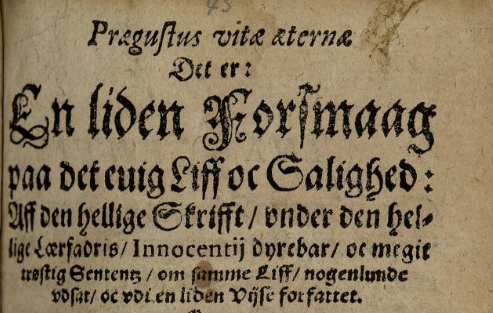 43
Prægustus vitæ æternæ
Det er:
En liden Forsmaag
paa det euig Liff oc Salighed:
Aff den hellige Skrifft/ vnder den hel-
lige Lærfadris/ Innocentij dyrebar/ oc megit
trøstig Sententz/ om samme Liff/ nogenlunde
vdsat/ oc vdi en liden Vijse forfattet.